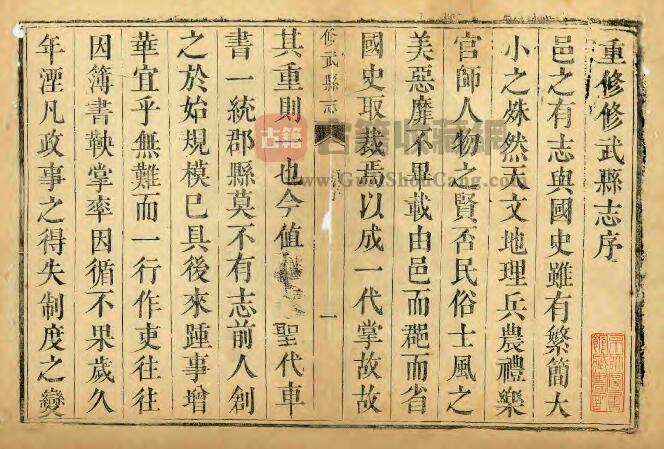 重修修武縣志序
邑之有志與國史雖有繁簡大
小之殊然天文地理兵農禮樂
官師人物之賢否民俗士風之
美惡靡不畢載由邑而郡而省
國史取裁焉以成一代掌故故
修武縣志
序
一
其重則一也今值
聖代車
書一統郡縣莫不有志前人創
之於始規模已具後來踵事增
華宜乎無難而一行作吏往往
因簿書鞅掌率因循不果歲久
年湮凡政事之得失制度之變
古籍
古籍收藏網
www.GuJiShouCang.com